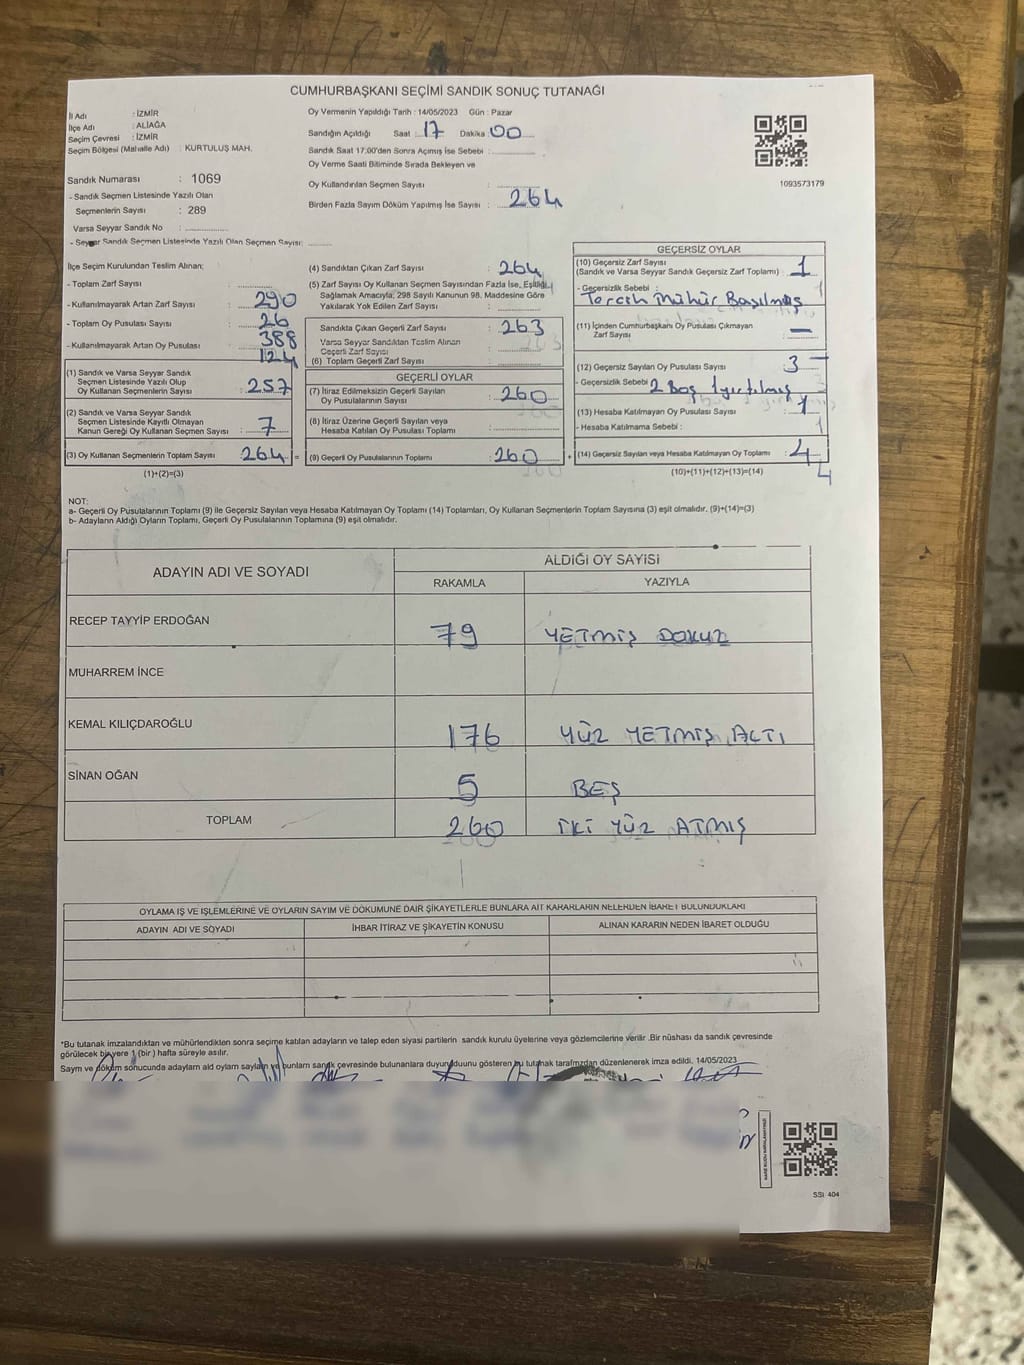 CUMHURBAŞKANI SEÇİMİ SANDIK SONUÇ TUTANAĞI
İl Adı : İZMİR
İlçe Adı : ALİAĞA
Seçim Çevresi : İZMİR
Seçim Bölgesi (Mahalle Adı) : KURTULUŞ MAH.
Sandık Numarası : 1069
- Sandık Seçmen Listesinde Yazılı Olan
Seçmenlerin Sayısı : 289
Varsa Seyyar Sandık No :
- Seyyar Sandık Seçmen Listesinde Yazılı Olan Seçmen Sayısı:
Oy Vermenin Yapıldığı Tarih : 14/05/2023 Gün : Pazar
Sandığın Açıldığı Saat : 17 Dakika : 00
Sandık Saat 17:00'den Sonra Açımış İse Sebebi :
Oy Verme Saati Bitiminde Sırada Bekleyen ve
Oy Kullandırılan Seçmen Sayısı :
Birden Fazla Sayım Döküm Yapılmış İse Sayısı : 264
1093573179
İlçe Seçim Kurulundan Teslim Alınan:
- Toplam Zarf Sayısı : 290
- Kullanılmayarak Artan Zarf Sayısı : 26
- Toplam Oy Pusulası Sayısı : 388
- Kullanılmayarak Artan Oy Pusulası : 124
(1) Sandık ve Varsa Seyyar Sandık
Seçmen Listesinde Yazılı Olup
Oy Kullanan Seçmenlerin Sayısı : 257
(2) Sandık ve Varsa Seyyar Sandık
Seçmen Listesinde Kayıtlı Olmayan
Kanun Gereği Oy Kullanan Seçmen Sayısı : 7
(3) Oy Kullanan Seçmenlerin Toplam Sayısı : 264 =
(1)+(2)=(3)
(4) Sandıktan Çıkan Zarf Sayısı : 264
(5) Zarf Sayısı Oy Kullanan Seçmen Sayısından Fazla İse, Eşitliği
Sağlamak Amacıyla, 298 Sayılı Kanunun 98. Maddesine Göre
Yakılarak Yok Edilen Zarf Sayısı :
Sandıkta Çıkan Geçerli Zarf Sayısı : 263
Varsa Seyyar Sandıktan Teslim Alınan
Geçerli Zarf Sayısı :
(6) Toplam Geçerli Zarf Sayısı :
GEÇERLİ OYLAR
(7) İtiraz Edilmeksizin Geçerli Sayılan
Oy Pusulalarının Sayısı : 260
(8) İtiraz Üzerine Geçerli Sayılan veya
Hesaba Katılan Oy Pusulası Toplamı :
(9) Geçerli Oy Pusulalarının Toplamı : 260 +
GEÇERSİZ OYLAR
(10) Geçersiz Zarf Sayısı
(Sandık ve Varsa Seyyar Sandık Geçersiz Zarf Toplamı) : 1
- Geçersizlik Sebebi :
Tercih mühür Basılmış
(11) İçinden Cumhurbaşkanı Oy Pusulası Çıkmayan
Zarf Sayısı : —
(12) Geçersiz Sayılan Oy Pusulası Sayısı : 3
- Geçersizlik Sebebi : 2 Boş 1 yırtılmış
(13) Hesaba Katılmayan Oy Pusulası Sayısı : 1
- Hesaba Katılmama Sebebi :
(14) Geçersiz Sayılan veya Hesaba Katılmayan Oy Toplamı : 4
4
(10)+(11)+(12)+(13)=(14)
NOT:
a- Geçerli Oy Pusulalarının Toplamı (9) İle Geçersiz Sayılan veya Hesaba Katılmayan Oy Toplamı (14) Toplamları, Oy Kullanan Seçmenlerin Toplam Sayısına (3) eşit olmalıdır. (9)+(14)=(3)
b- Adayların Aldığı Oyların Toplamı, Geçerli Oy Pusulalarının Toplamına (9) eşit olmalıdır.
ADAYIN ADI VE SOYADI
ALDIĞI OY SAYISI
RAKAMLA YAZIYLA
RECEP TAYYİP ERDOĞAN 79 YETMİŞ DOKUZ
MUHARREM İNCE
KEMAL KILIÇDAROĞLU 176 YÜZ YETMİŞ ALTI
SİNAN OĞAN 5 BEŞ
TOPLAM 260 İKİ YÜZ ATMIŞ
OYLAMA İŞ VE İŞLEMLERİNE VE OYLARIN SAYIM VE DÖKÜMÜNE DAİR ŞİKAYETLERLE BUNLARA AİT KARARLARIN NELERDEN İBARET BULUNDUKLARI
ADAYIN ADI VE SOYADI İHBAR İTİRAZ VE ŞİKAYETİN KONUSU ALINAN KARARIN NEDEN İBARET OLDUĞU
*Bu tutanak imzalandıktan ve mühürlendikten sonra seçime katılan adayların ve talep eden siyasi partilerin sandık kurulu üyelerine veya gözlemcilerine verilir .Bir nüshası da sandık çevresinde
görülecek bir yere 1 (bir ) hafta süreyle asılır.
Sayım ve döküm sonucunda adayların ald oyların sayıları ve bunların sandık çevresinde bulunanlara duyurulduğunu gösteren bu tutanak tarafımızdan düzenlenerek imza edildi. 14/05/2023
SSI 404